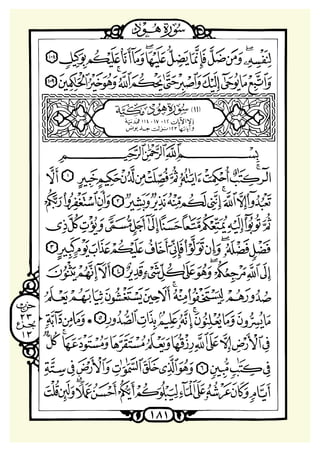 سُورَةُ هُودٍ
لِنَفْسِهِۦ وَمَن ضَلَّ فَإِنَّمَا يَضِلُّ عَلَيْهَا وَمَآ أَنَا۠ عَلَيْكُم بِوَكِيلٍ ١٠٨
وَاتَّبِعْ مَا يُوحَىٰٓ إِلَيْكَ وَاصْبِرْ حَتَّىٰ يَحْكُمَ اللَّهُ وَهُوَ خَيْرُ الْحَٰكِمِينَ ١٠٩
(١١) سُورَةُ هُودٍ مَكِّيَّة
إلا الآيات ١٢، ١٧، ١١٤ فمدنية
وآياتها ١٢٣ نزلت بعد يونس
بِسْمِ اللَّهِ الرَّحْمَٰنِ الرَّحِيمِ
الٓر كِتَٰبٌ أُحْكِمَتْ ءَايَٰتُهُۥ ثُمَّ فُصِّلَتْ مِن لَّدُنْ حَكِيمٍ خَبِيرٍ ١ أَلَّا
تَعْبُدُوٓا۟ إِلَّا اللَّهَ إِنَّنِي لَكُم مِّنْهُ نَذِيرٌ وَبَشِيرٌ ٢ وَأَنِ اسْتَغْفِرُوا۟ رَبَّكُمْ
ثُمَّ تُوبُوٓا۟ إِلَيْهِ يُمَتِّعْكُم مَّتَٰعًا حَسَنًا إِلَىٰٓ أَجَلٍ مُّسَمًّى وَيُؤْتِ كُلَّ ذِي
فَضْلٍ فَضْلَهُۥ وَإِن تَوَلَّوْا۟ فَإِنِّيٓ أَخَافُ عَلَيْكُمْ عَذَابَ يَوْمٍ كَبِيرٍ ٣
إِلَى اللَّهِ مَرْجِعُكُمْ وَهُوَ عَلَىٰ كُلِّ شَيْءٍ قَدِيرٌ ٤ أَلَآ إِنَّهُمْ يَثْنُونَ
صُدُورَهُمْ لِيَسْتَخْفُوا۟ مِنْهُ أَلَا حِينَ يَسْتَغْشُونَ ثِيَابَهُمْ يَعْلَمُ
مَا يُسِرُّونَ وَمَا يُعْلِنُونَ إِنَّهُۥ عَلِيمٌ بِذَاتِ الصُّدُورِ ٥ * وَمَا مِن دَآبَّةٍ
فِي الْأَرْضِ إِلَّا عَلَى اللَّهِ رِزْقُهَا وَيَعْلَمُ مُسْتَقَرَّهَا وَمُسْتَوْدَعَهَا كُلٌّ
فِي كِتَٰبٍ مُّبِينٍ ٦ وَهُوَ الَّذِي خَلَقَ السَّمَٰوَٰتِ وَالْأَرْضَ فِي سِتَّةِ
أَيَّامٍ وَكَانَ عَرْشُهُۥ عَلَى الْمَآءِ لِيَبْلُوَكُمْ أَيُّكُمْ أَحْسَنُ عَمَلًا وَلَئِن قُلْتَ
حزب
٢٣
جزء
١٢
١٨١